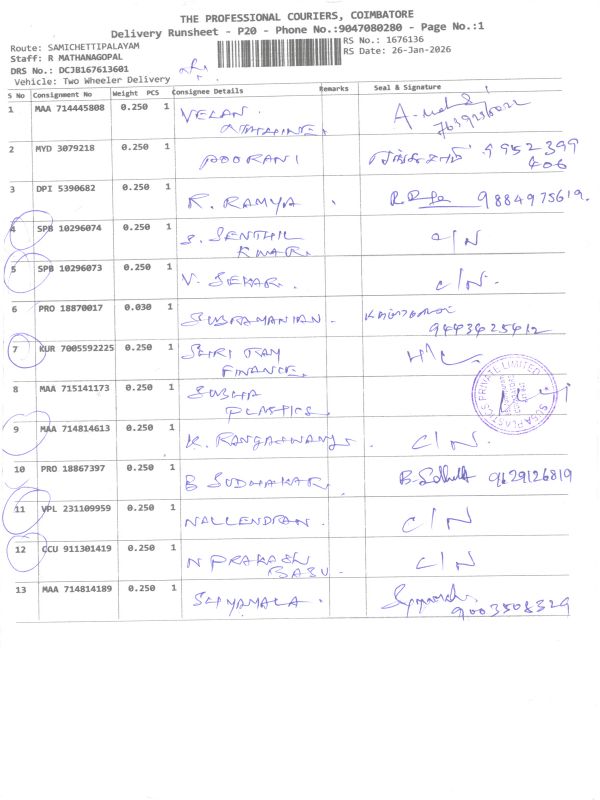 THE PROFESSIONAL COURIERS, COIMBATORE
Delivery Runsheet - P20 - Phone No.:9047080280 - Page No.:1
Route: SAMICHETTIPALAYAM RS No.: 1676136
Staff: R MATHANAGOPAL RS Date: 26-Jan-2026
DRS No.: DCJB167613601
Vehicle: Two Wheeler Delivery
S No Consignment No Weight PCS Consignee Details Remarks Seal & Signature
1 MAA 714445808 0.250 1 VELAN
7639236022
2 MYD 3079218 0.250 1 POORANI 9952399
406
3 DPI 5390682 0.250 1 R. RAMYA 9884975619.
4 SPB 10296074 0.250 1 S. SENTHIL C/N
KUMAR.
5 SPB 10296073 0.250 1 V. SEKAR. C/N.
6 PRO 18870017 0.030 1 SUBRAMANIAN.
9443425412
7 KUR 7005592225 0.250 1 SHRI JAY
FINANCE.
8 MAA 715141173 0.250 1 SUSHA
PLASTICS.
9 MAA 714814613 0.250 1 K. RANGASWAMY. C/N.
10 PRO 18867397 0.250 1 B SUDHAKAR. 9629126819
11 VPL 231109959 0.250 1 NALLENDRAN. C/N
12 CCU 911301419 0.250 1 N PRAKASH C/N
BABU.
13 MAA 714814189 0.250 1 SHYAMALA.
9003508329